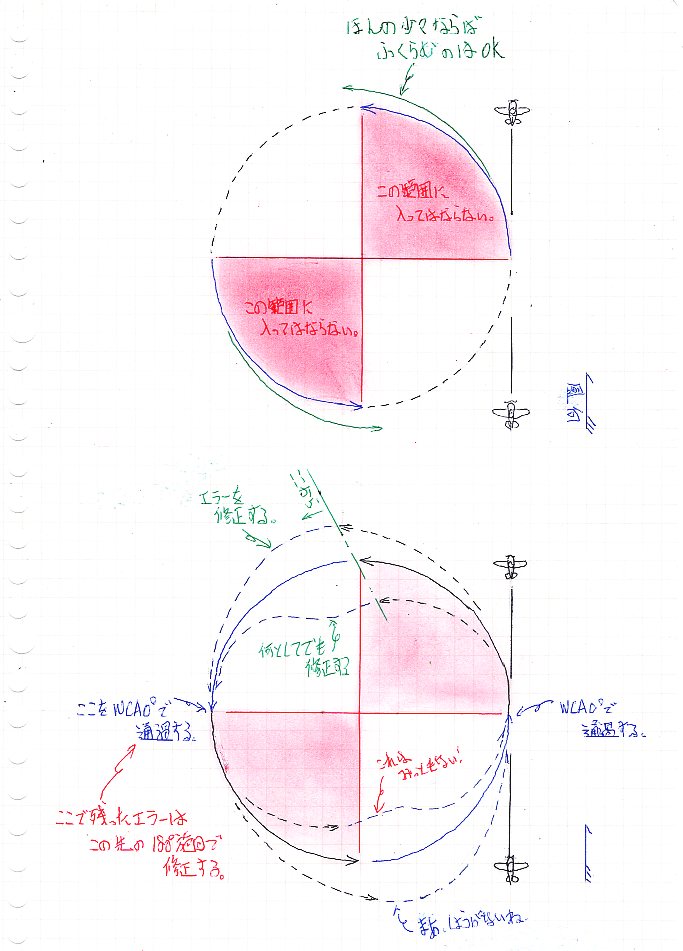 ほんの少々ならば
ふくらむのはOK
この範囲に
入ってはならない。
この範囲に
入ってはならない。
風向
エラーを
修正する。
何としてでも
修正する
ここをWCA0°で
通過する。
WCA0°で
通過する。
これは
みっともない!
ここで残ったエラーは
この先の
旋回で
修正する。
まあ、しょうがないね